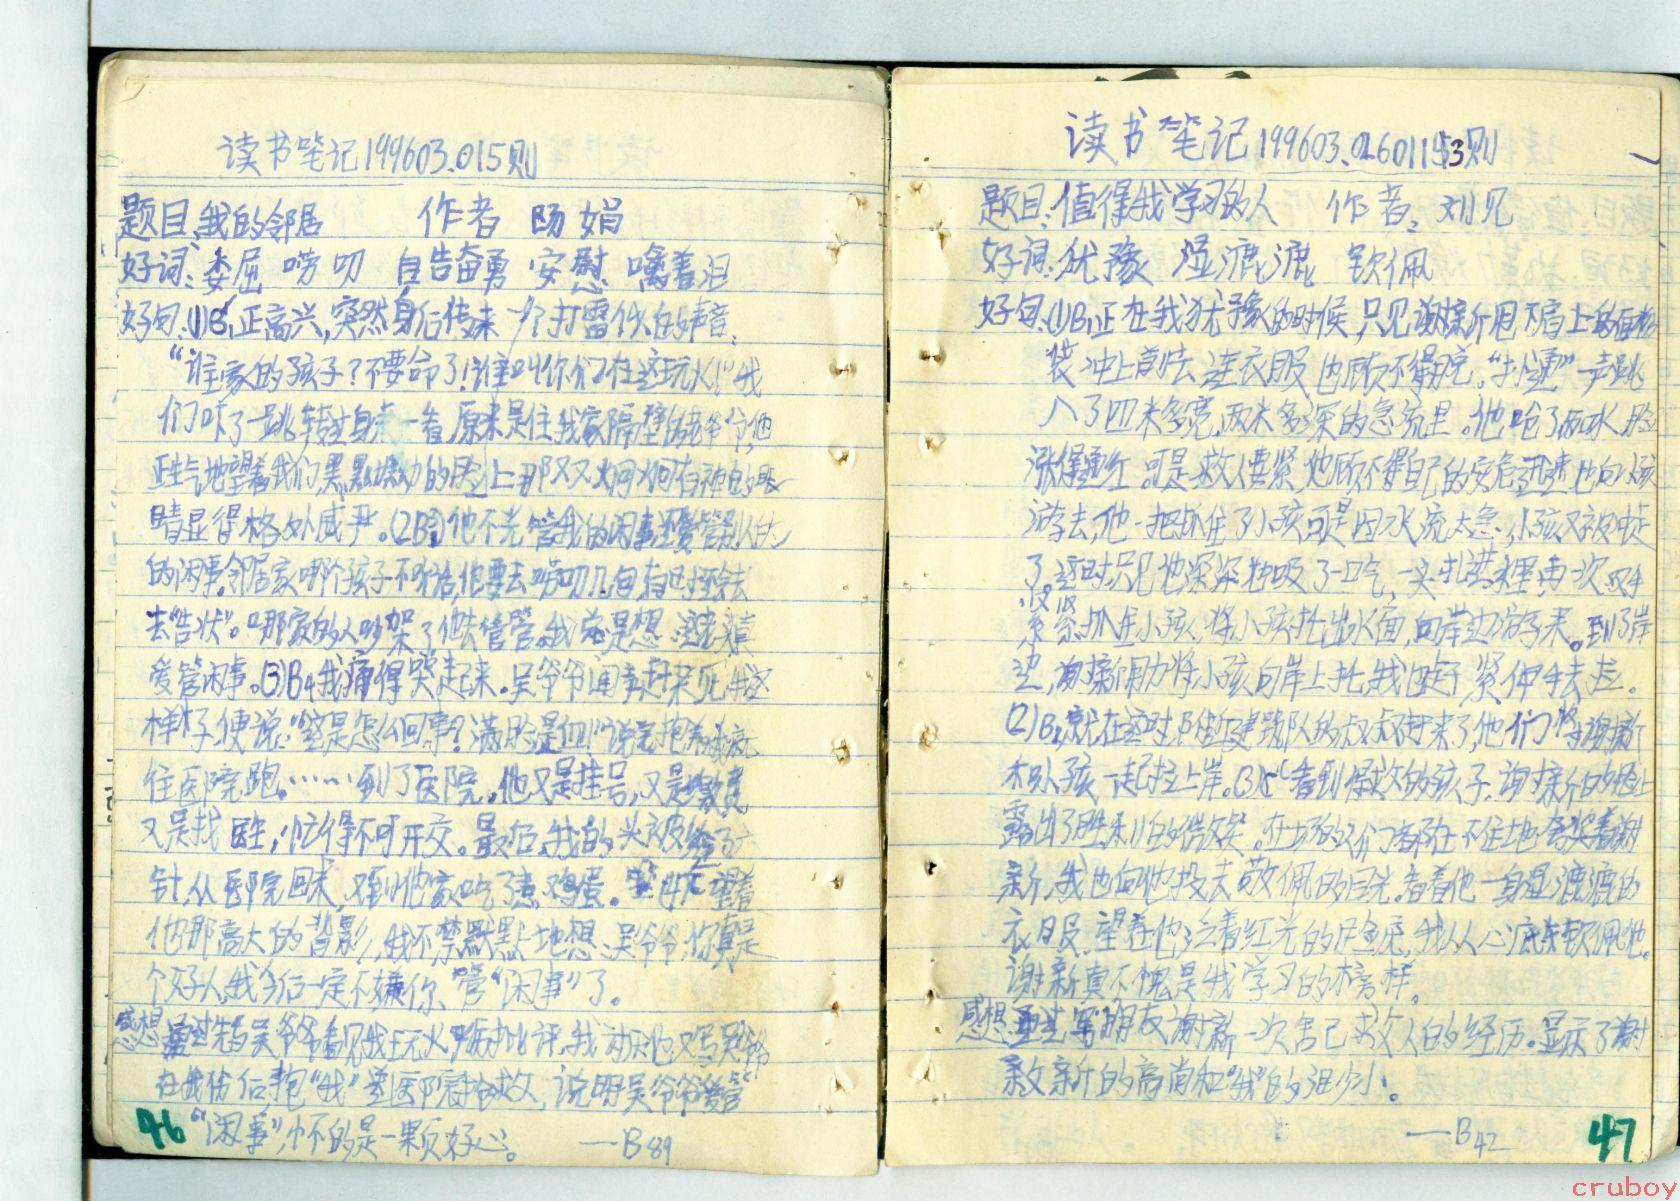 读书笔记199603.015则
题目:我的邻居 作者 阳娟
好词:委屈 唠叨 自告奋勇 安慰 噙着泪
好句:(1)B1正高兴,突然身后传来一个打雷似的声音:
“谁家的孩子?不要命了!谁叫你们在这玩火!”我
们吓了一跳,转过身来一看,原来是住我家隔壁的爷爷,他
正生气地望着我们,黑黝黝的脸上那双炯炯有神的眼
睛显得格外威严。(2)B 他不光管我的闲事,还爱管别人的
的闲事。邻居家哪个孩子不听话,他要去唠叨几句,有时还
去“告状”。哪家的人吵架了他去管管。我总是想:这老头真
爱管闲事。(3)B4我痛得哭起来。吴爷爷闻声赶来,见我这
样子,便说:“这是怎么回事?满脸是血!”说完抱着我就
往医院跑。……到了医院。他又是挂号,又是缴费
又是找医生,忙得不可开交。最后,我的头被缝了六
针,从医院回来,又到他家吃了煮鸡蛋。望着
他那高大的背影,我不禁默默地想:吴爷爷,你真是
个好人,我今后一定不嫌你 管“闲事”了。
感想:通过先写吴爷爷看见我玩火 批评,我 又写吴爷爷
在我伤后抱“我”去医院抢救,说明吴爷爷爱管
“闲事”, 的是一颗好心。 ——B89
46
读书笔记199603.0160113则
题目:值得我学习的人 作者:刘见
好词:犹豫 湿漉漉 钦佩
好句:(1)B1正在我犹豫的时候,只见谢新甩下肩上的
冲上前去,连衣服也顾不得脱。“扑通”一声跳
入了四米多宽,两米多深的急流里。他呛了两口水,脸
涨得通红。可是救人要紧,他顾不得自己的安危,迅速地向小孩
游去,他一把抓住了小孩,可是因水流太急,小孩又被冲走
了。这时只见他深深地吸了一口气,一头扎进水里,再一次双手
紧紧抓住小孩,将小孩托出水面,向岸边游来。到了岸
边,谢新用力将小孩向岸上托,我 紧伸手去拉。
(2)B2就在这时,附近建筑队的叔叔赶来了,他们将谢新
和小孩一起拉上岸。(3)C 看到得救的孩子,谢新的脸上
露出了胜利的微笑。在场的人们都在不住地夸奖着谢
新,我也向他投去敬佩的目光。看着他一身湿漉漉的
衣服,望着他泛着红光的脸庞,我从心底里钦佩他。
谢新真不愧是我学习的榜样。
感想:通过写 朋友谢新一次舍己救人的经历。显示了谢
新的高尚和“我”的渺小。
——B42
47
cruboy